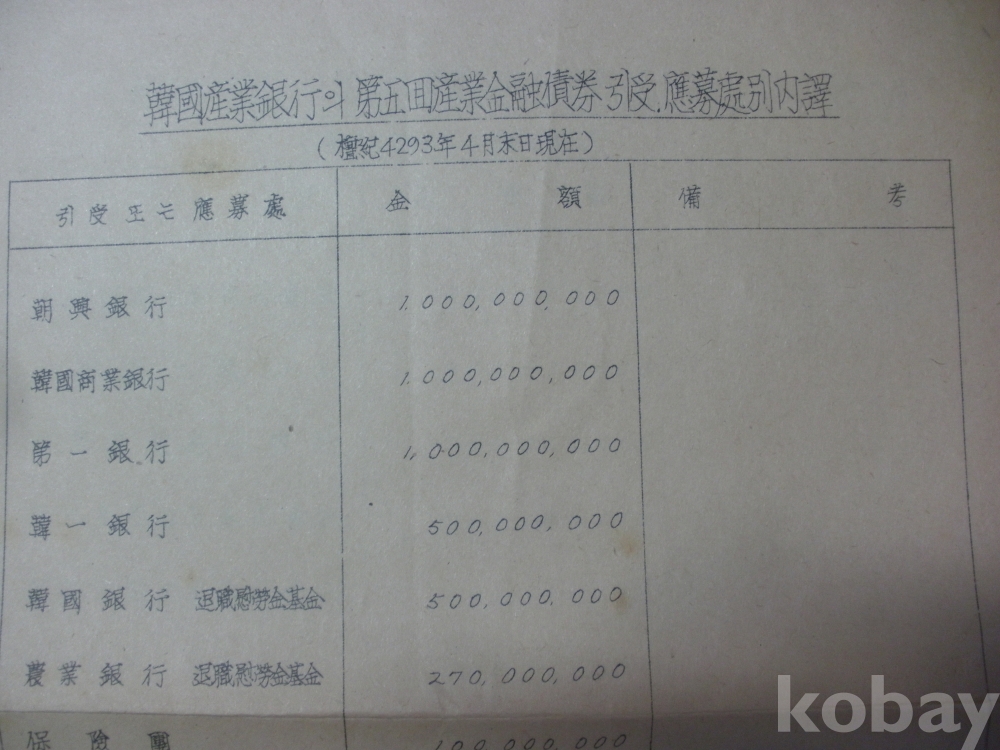 韓國産業銀行의 第五回産業金融債券引受.應募處別內譯
(檀紀4293年4月末日現在)
引受 또는 應募處 金額 備考
朝興銀行 1,000,000,000
韓國商業銀行 1,000,000,000
第一銀行 1,000,000,000
韓一銀行 500,000,000
韓國銀行 退職慰勞金基金 500,000,000
農業銀行 退職慰勞金基金 270,000,000
保險團 100,000,000
kobay